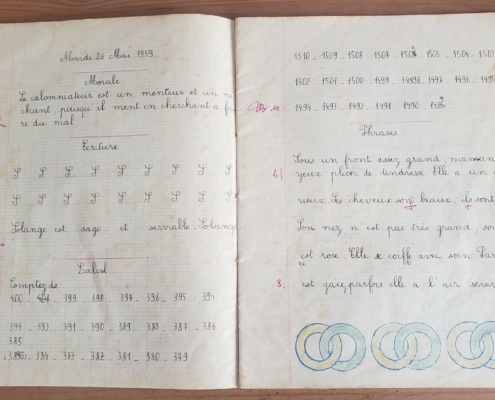 Mardi 26 Mai 1959
Morale
Le calomniateur est un menteur et un mé
chant, puisqu'il ment en cherchant à fai
re du mal
Ecriture
S S S S S S S S S
S S S S S S S S S
Solange est sage et serviable Solange
Calcul
Comptez de
400 - 401 - 399 - 398 - 397 - 396 - 395 - 394
393 - 392 - 391 - 390 - 389 - 388 - 387 - 386
385
385 - 384 - 383 - 382 - 381 - 380 - 379
1510 - 1509 - 1508 - 1507 - 1506 - 1505 - 1504 - 1503
1502 - 1501 - 1500 - 1499 - 1498 - 1497 - 1496 - 1495
1494 - 1493 - 1492 - 1491 - 1490 - 1489
10
Phrases
Sous un front assez grand, maman
yeux plein de tendresse Elle a un
rieux. Ses cheveux sont beaux, ils sont
Son nez n'est pas très grand, son
est rose. Elle se coiffe avec soin Par
est gaie, parfois elle a l'air sérieu
8.